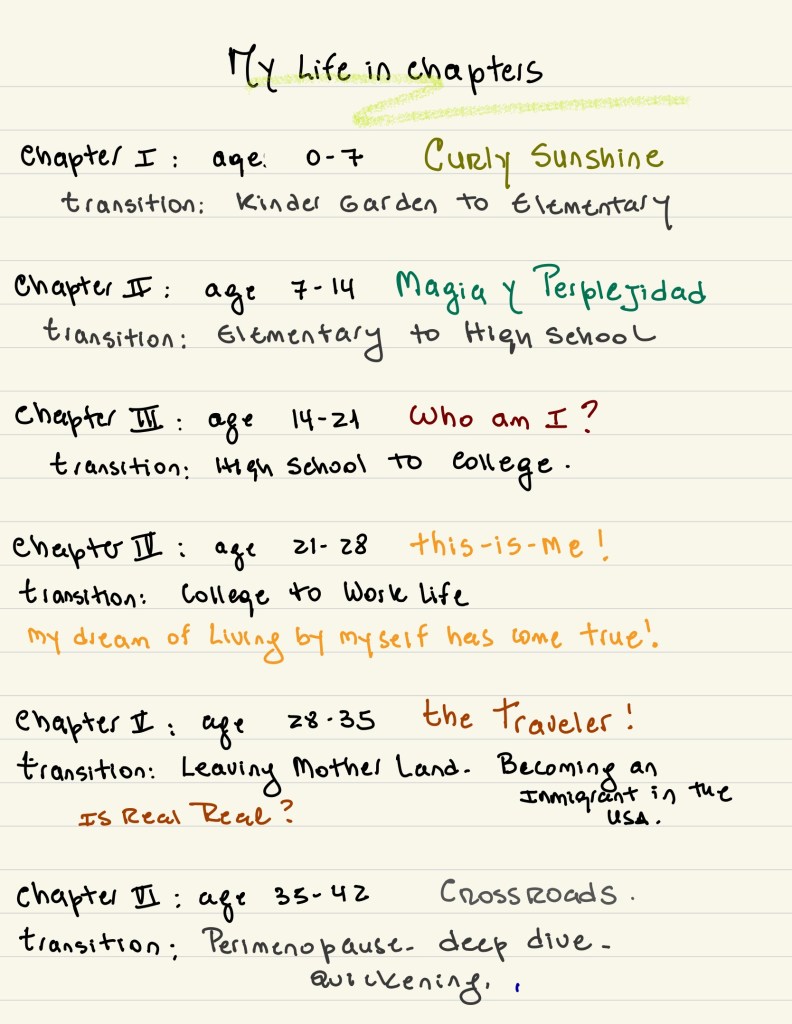 My Life in chapters
Chapter I : age. 0-7 Curly Sunshine
transition: Kinder Garden to Elementary
Chapter II : age 7-14 Magia y Perplejidad
transition: Elementary to High School
Chapter III : age 14-21 Who am I?
transition: High School to College.
Chapter IV : age 21-28 this-is-me!
transition: College to Work Life
my dream of Living by myself has come true!
Chapter V : age 28-35 the Traveler!
transition: Leaving Mother Land. Becoming an
Inmigrant in the
Is Real Real?
USA.
Chapter VI : age 35-42 CrossRoads.
transition: Perimenopause- deep dive-
Quickening.